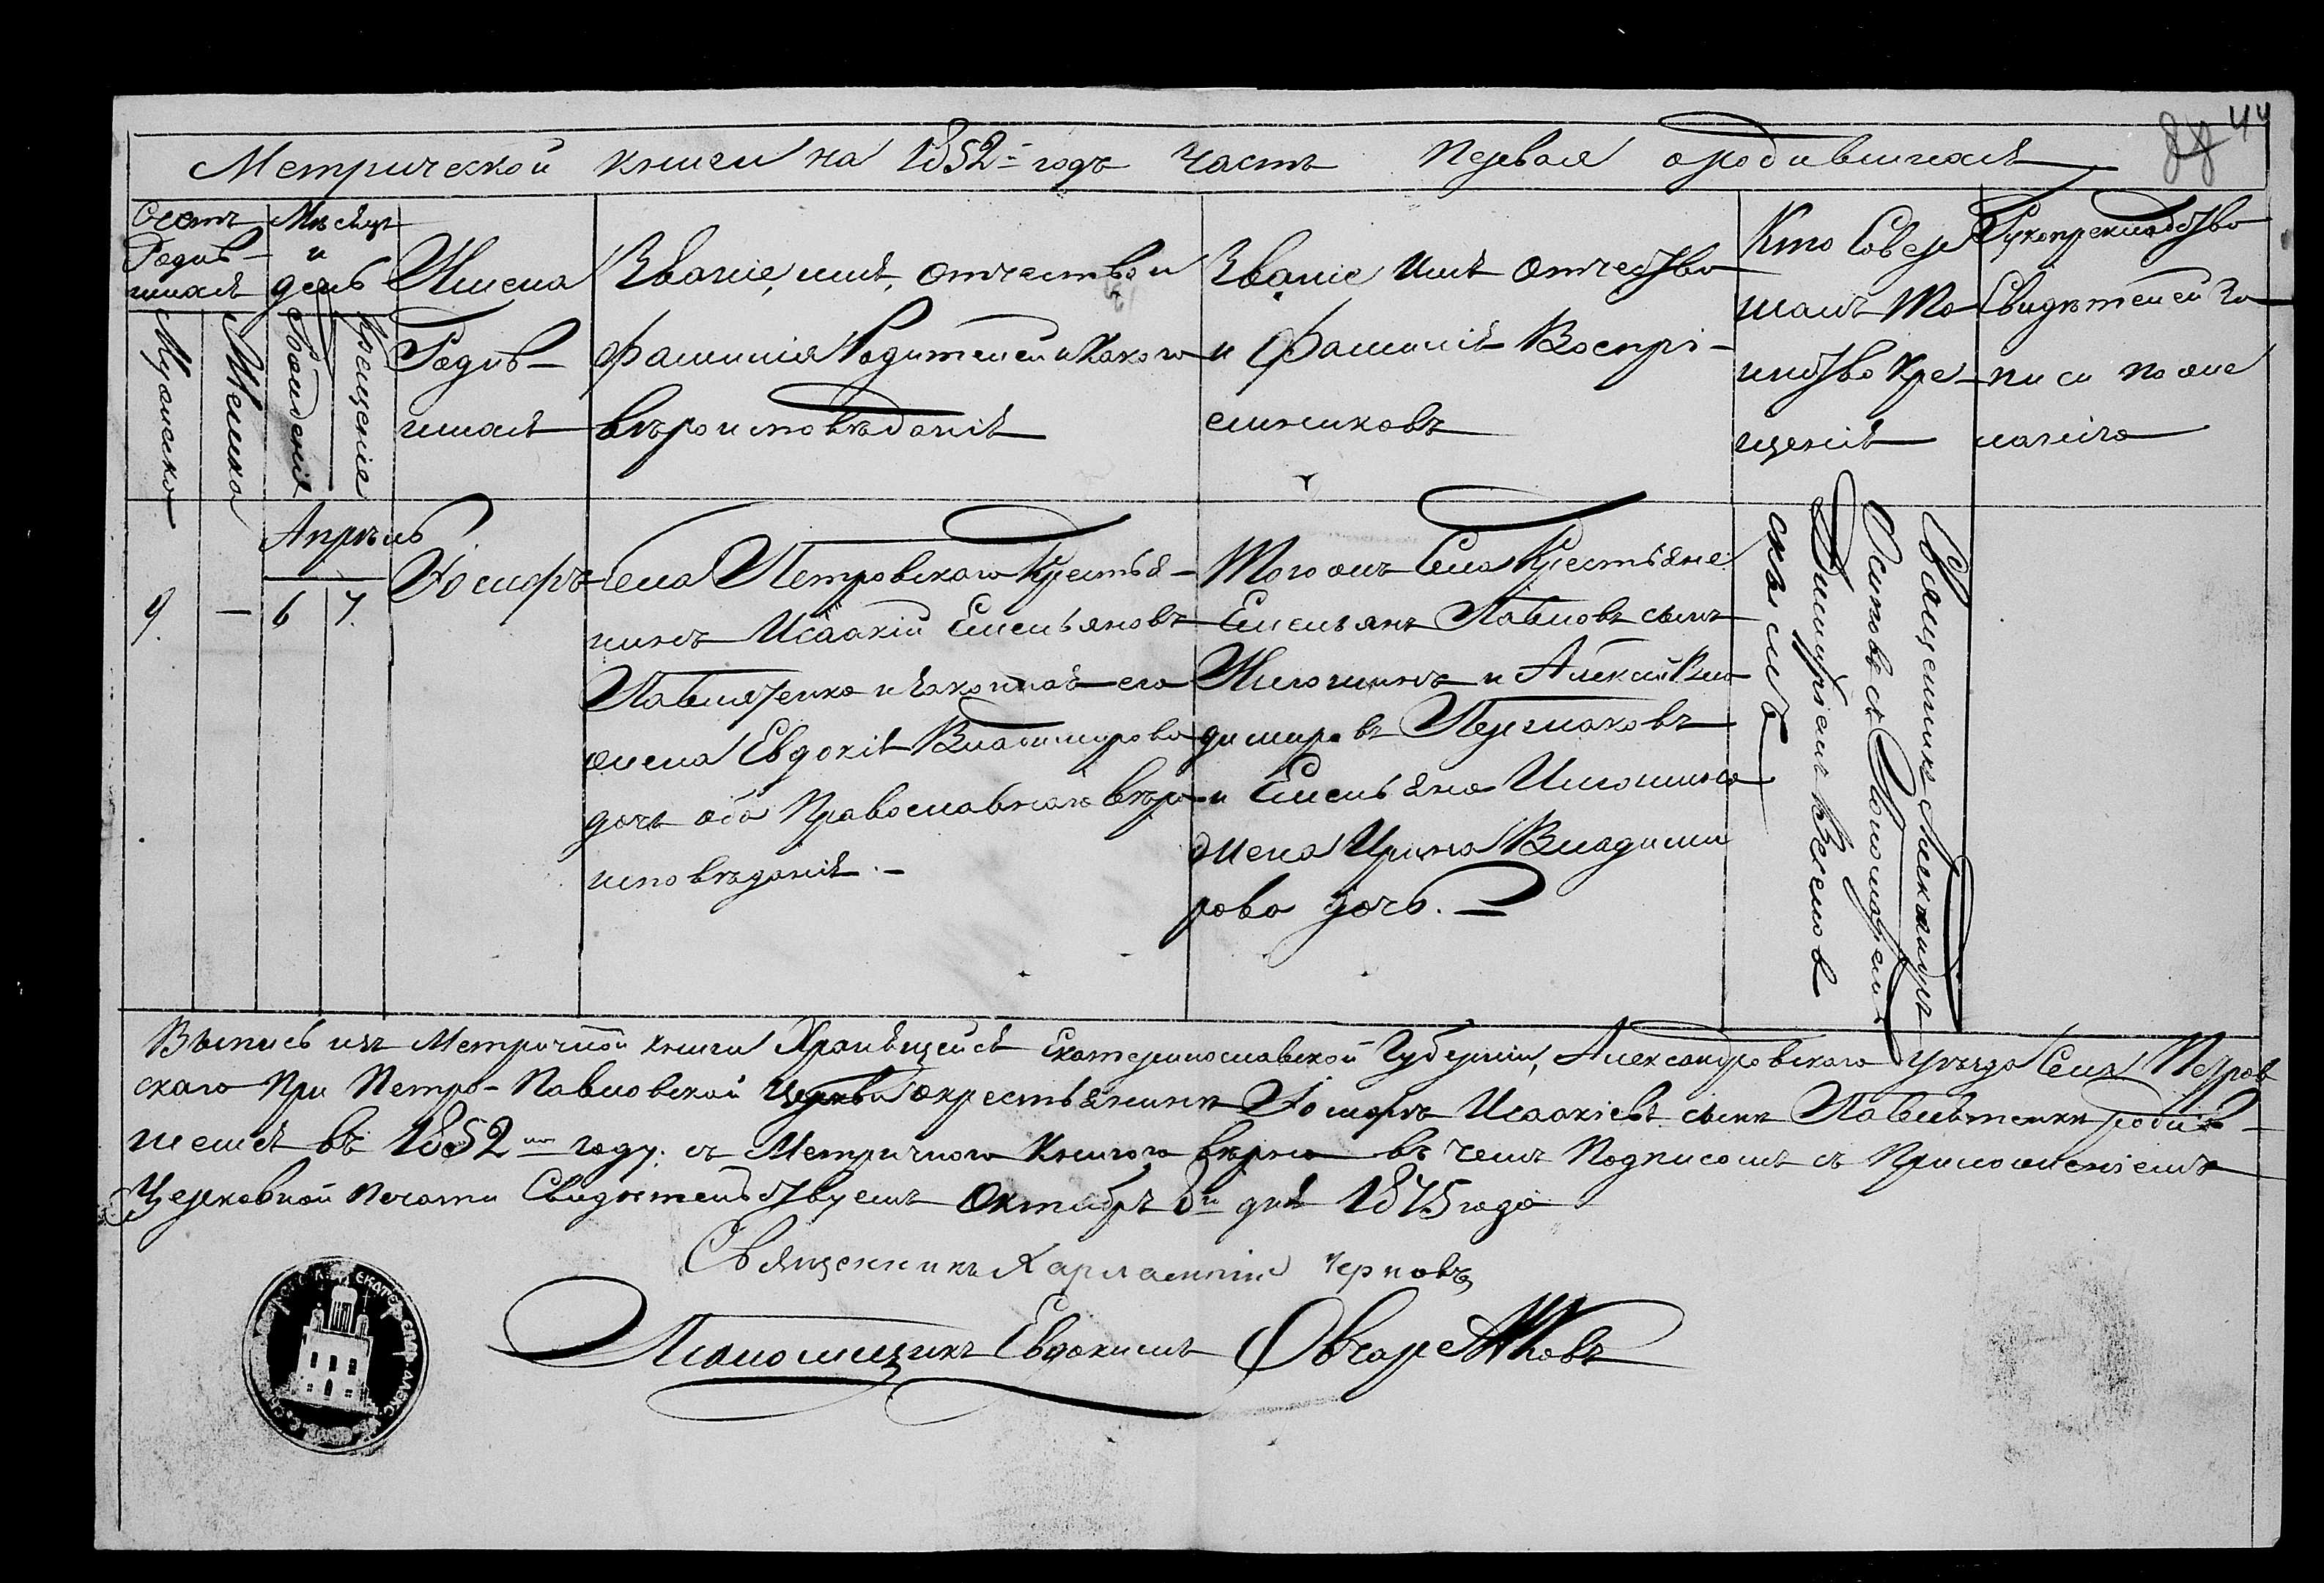 44
Метрической книги на 1852-годъ Часть Первая о родившихся
Счетъ Родив-шихся
Мѣсяцъ и день
Мужеска
Женска
Рожденія
Крещенія
Имена
Родив-
шихся
Званіе, имя, отчество и
фамилія Родителей и какого
вѣроисповѣданія
Званіе Имя Отчество
и фамилія Воспрі-
емниковъ
Кто Совер
шалъ Та
инство Кре-
щенія
Рукоприкладство
Свидѣтелей За
писи по же
ланію
Апрѣль
9.
-
6
7.
Іосифъ
Села Петровскаго Крестья-
нинъ Исаакій Емельяновъ
Павлятенко и законная его
жена Евдокія Владимирова
дочь оба Православнаго вѣро
исповѣданія. -
Того жъ Села Крестьяне
Емельянъ Павловъ сынъ
и Алексѣй Вла
димировъ
и Емельяна
жена Ирина Владими
рова дочь. -
Священникъ Александръ
Осиповъ съ Пономаремъ
Димитріемъ
скимъ
Выпись изъ Метричной книги Хранящейся Екатеринославской Губерніи, Александровскаго уѣзда Села Петров
скаго При Петро-Павловской Церкви о крестьянинѣ Іосифѣ Исаакіевѣ сынѣ Павлятенкѣ родив-
шемся въ 1852 году. съ Метричною Книгою вѣрна въ чемъ Подписомъ съ Приложеніемъ
Церковной Печати Свидѣтельствуемъ Октября 8 дня 1875 года
Священникъ Харлампій Черновъ
Псаломщикъ Евдокимъ